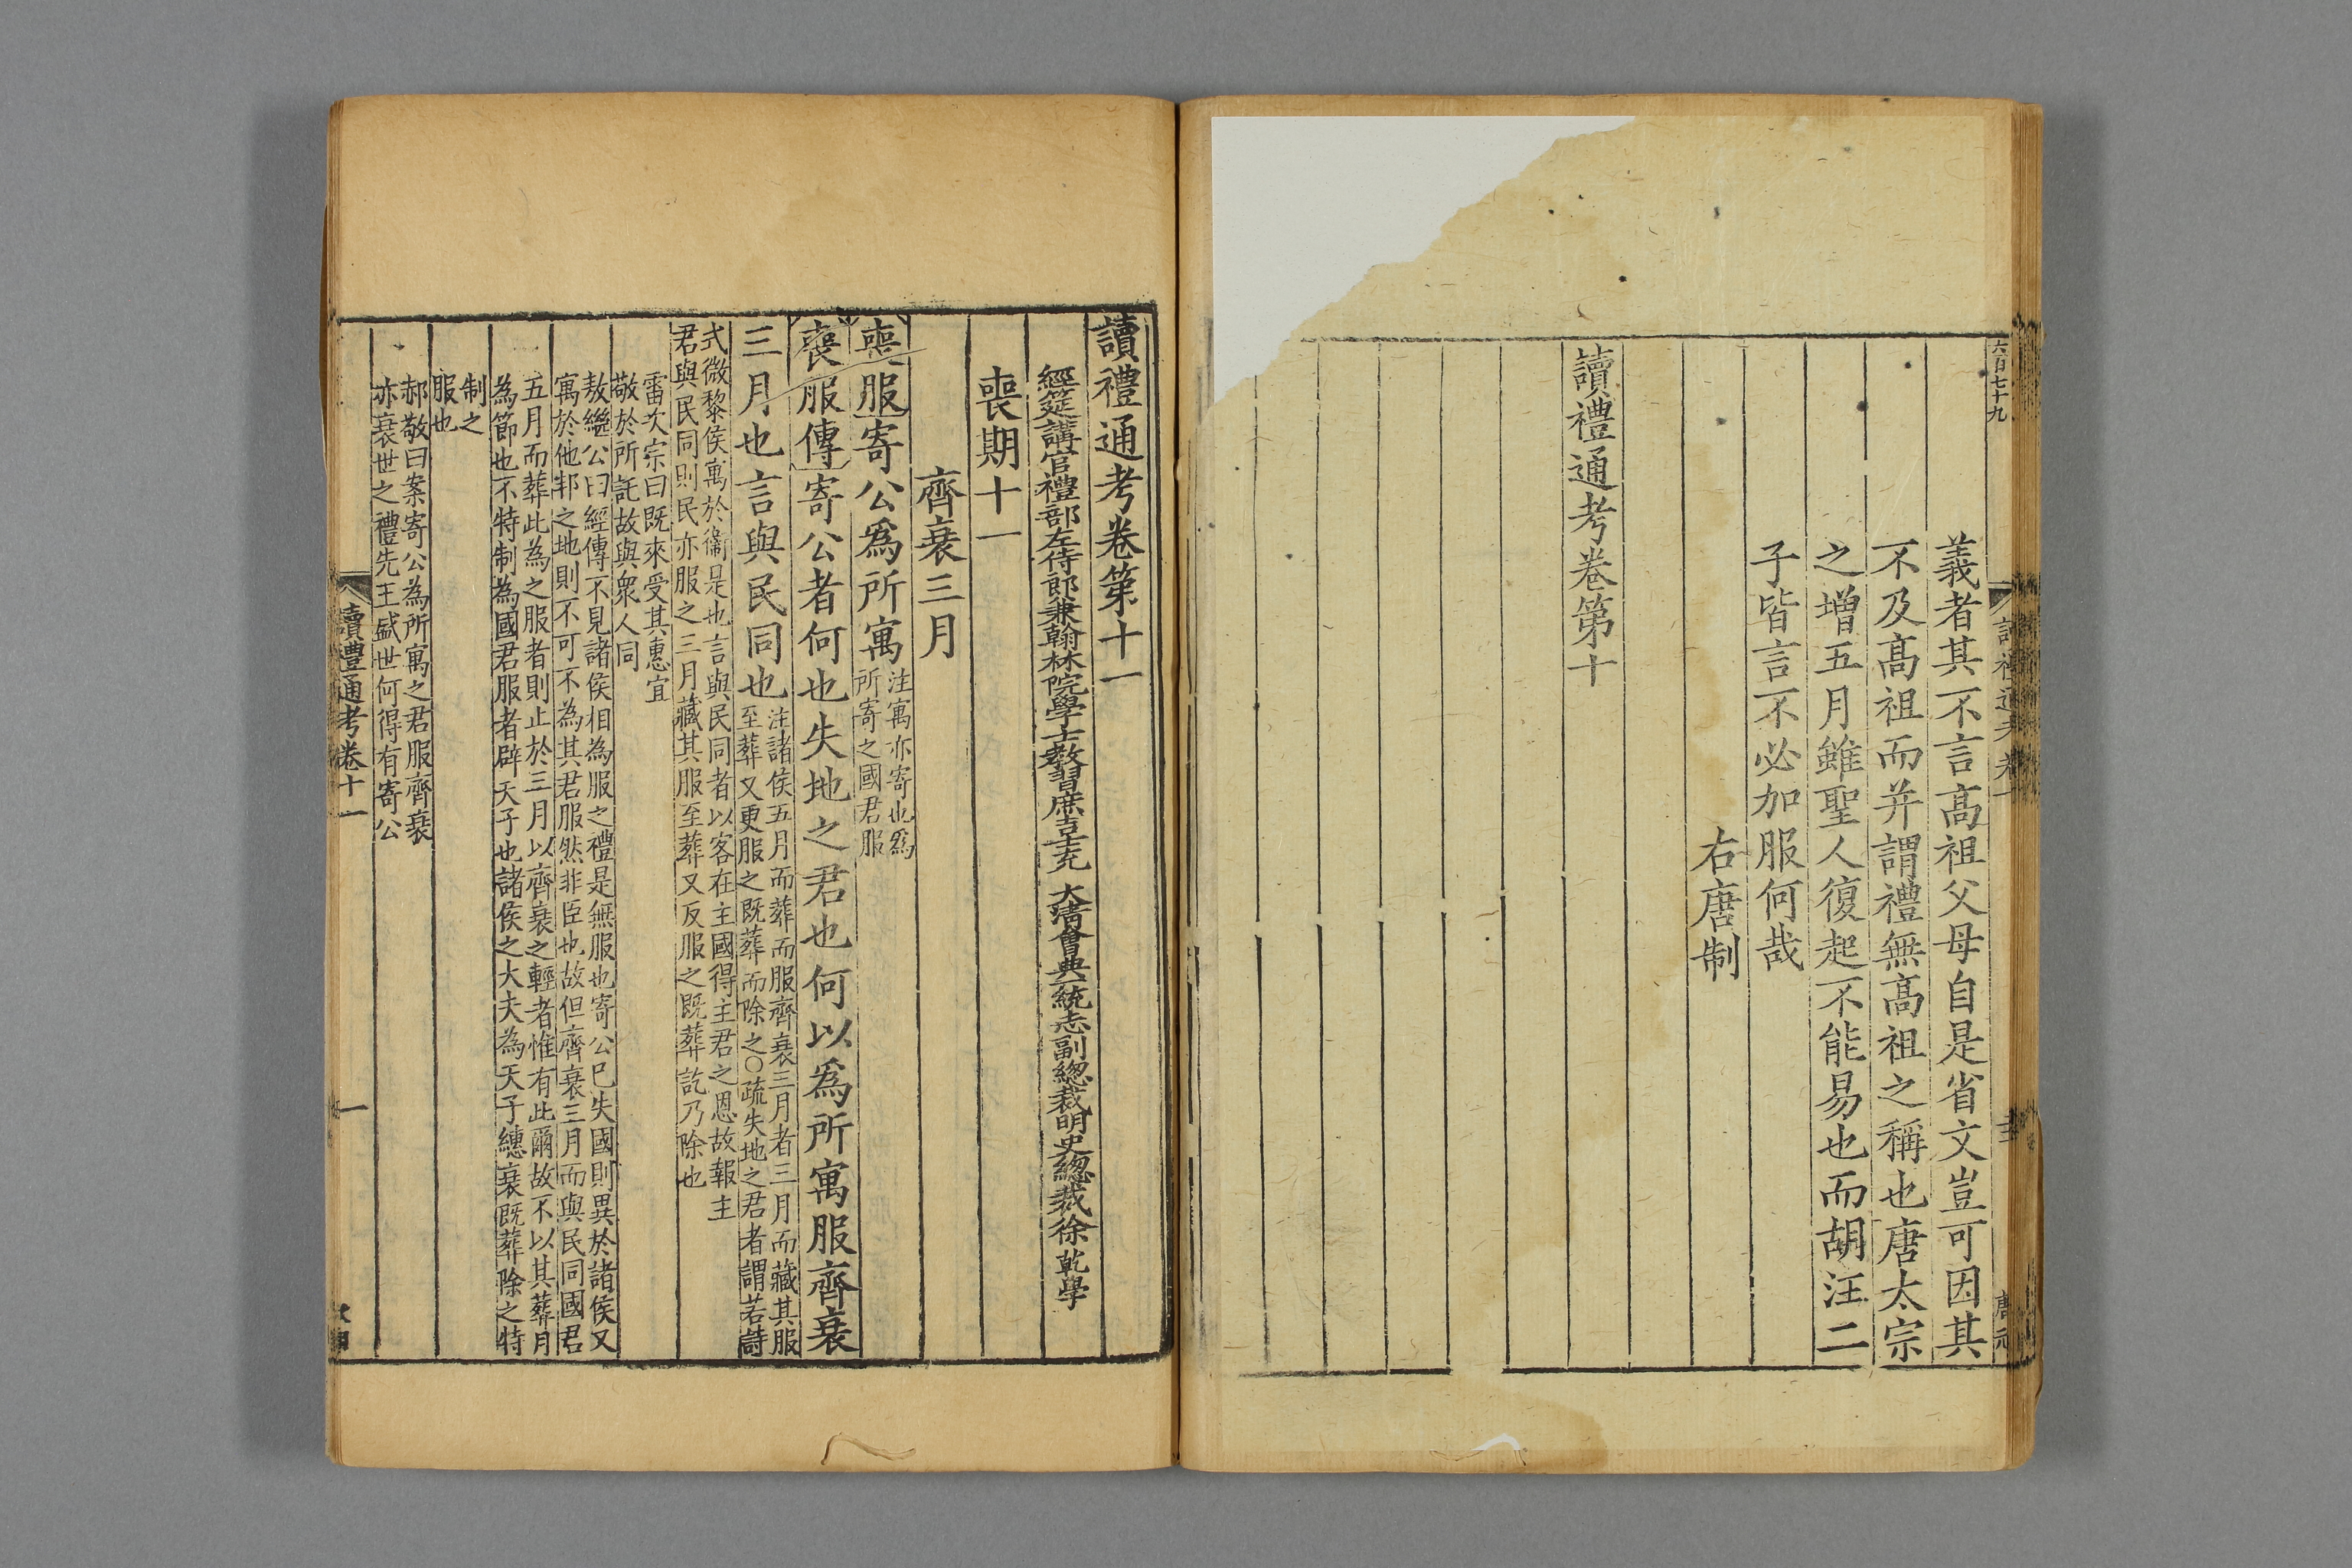 六百七十九
義者其不言高祖父母自是省文豈可因其
不及高祖而并謂禮無高祖之稱也唐太宗
之增五月雖聖人復起不能易也而胡汪二
子皆言不必加服何哉
右唐制
讀禮通考卷第十
讀禮通考卷第十一
經筵講官禮部左侍郎兼翰林院學士教習庶吉士充 大清會典一統志副總裁明史總裁徐乾學
喪期十一
齊衰三月
喪服寄公爲所寓
注寓亦寄也爲
所寄之國君服
喪服傳寄公者何也失地之君也何以爲所寓服齊衰
三月也言與民同也
注諸侯五月而葬而服齊衰三月者三月而藏其服
至葬又更服之既葬而除之〇疏失地之君者謂若詩
式微黎侯寓於衞是也言與民同者以客在主國得主君之恩故報主
君與民同則民亦服之三月藏其服至葬又反服之既葬訖乃除也
雷次宗曰既來受其惠宜
敬於所託故與衆人同
敖繼公曰經傳不見諸侯相為服之禮是無服也寄公已失國則異於諸侯又
寓於他邦之地則不可不為其君服然非臣也故但齊衰三月而與民同國君
五月而葬此為之服者則止於三月以齊衰之輕者惟有此爾故不以其葬月
為節也不特制為國君服者辟天子也諸侯之大夫為天子繐衰既葬除之特
制之
服也
郝敬曰案寄公為所寓之君服齊衰
亦衰世之禮先王盛世何得有寄公
讀禮通考卷十一
一